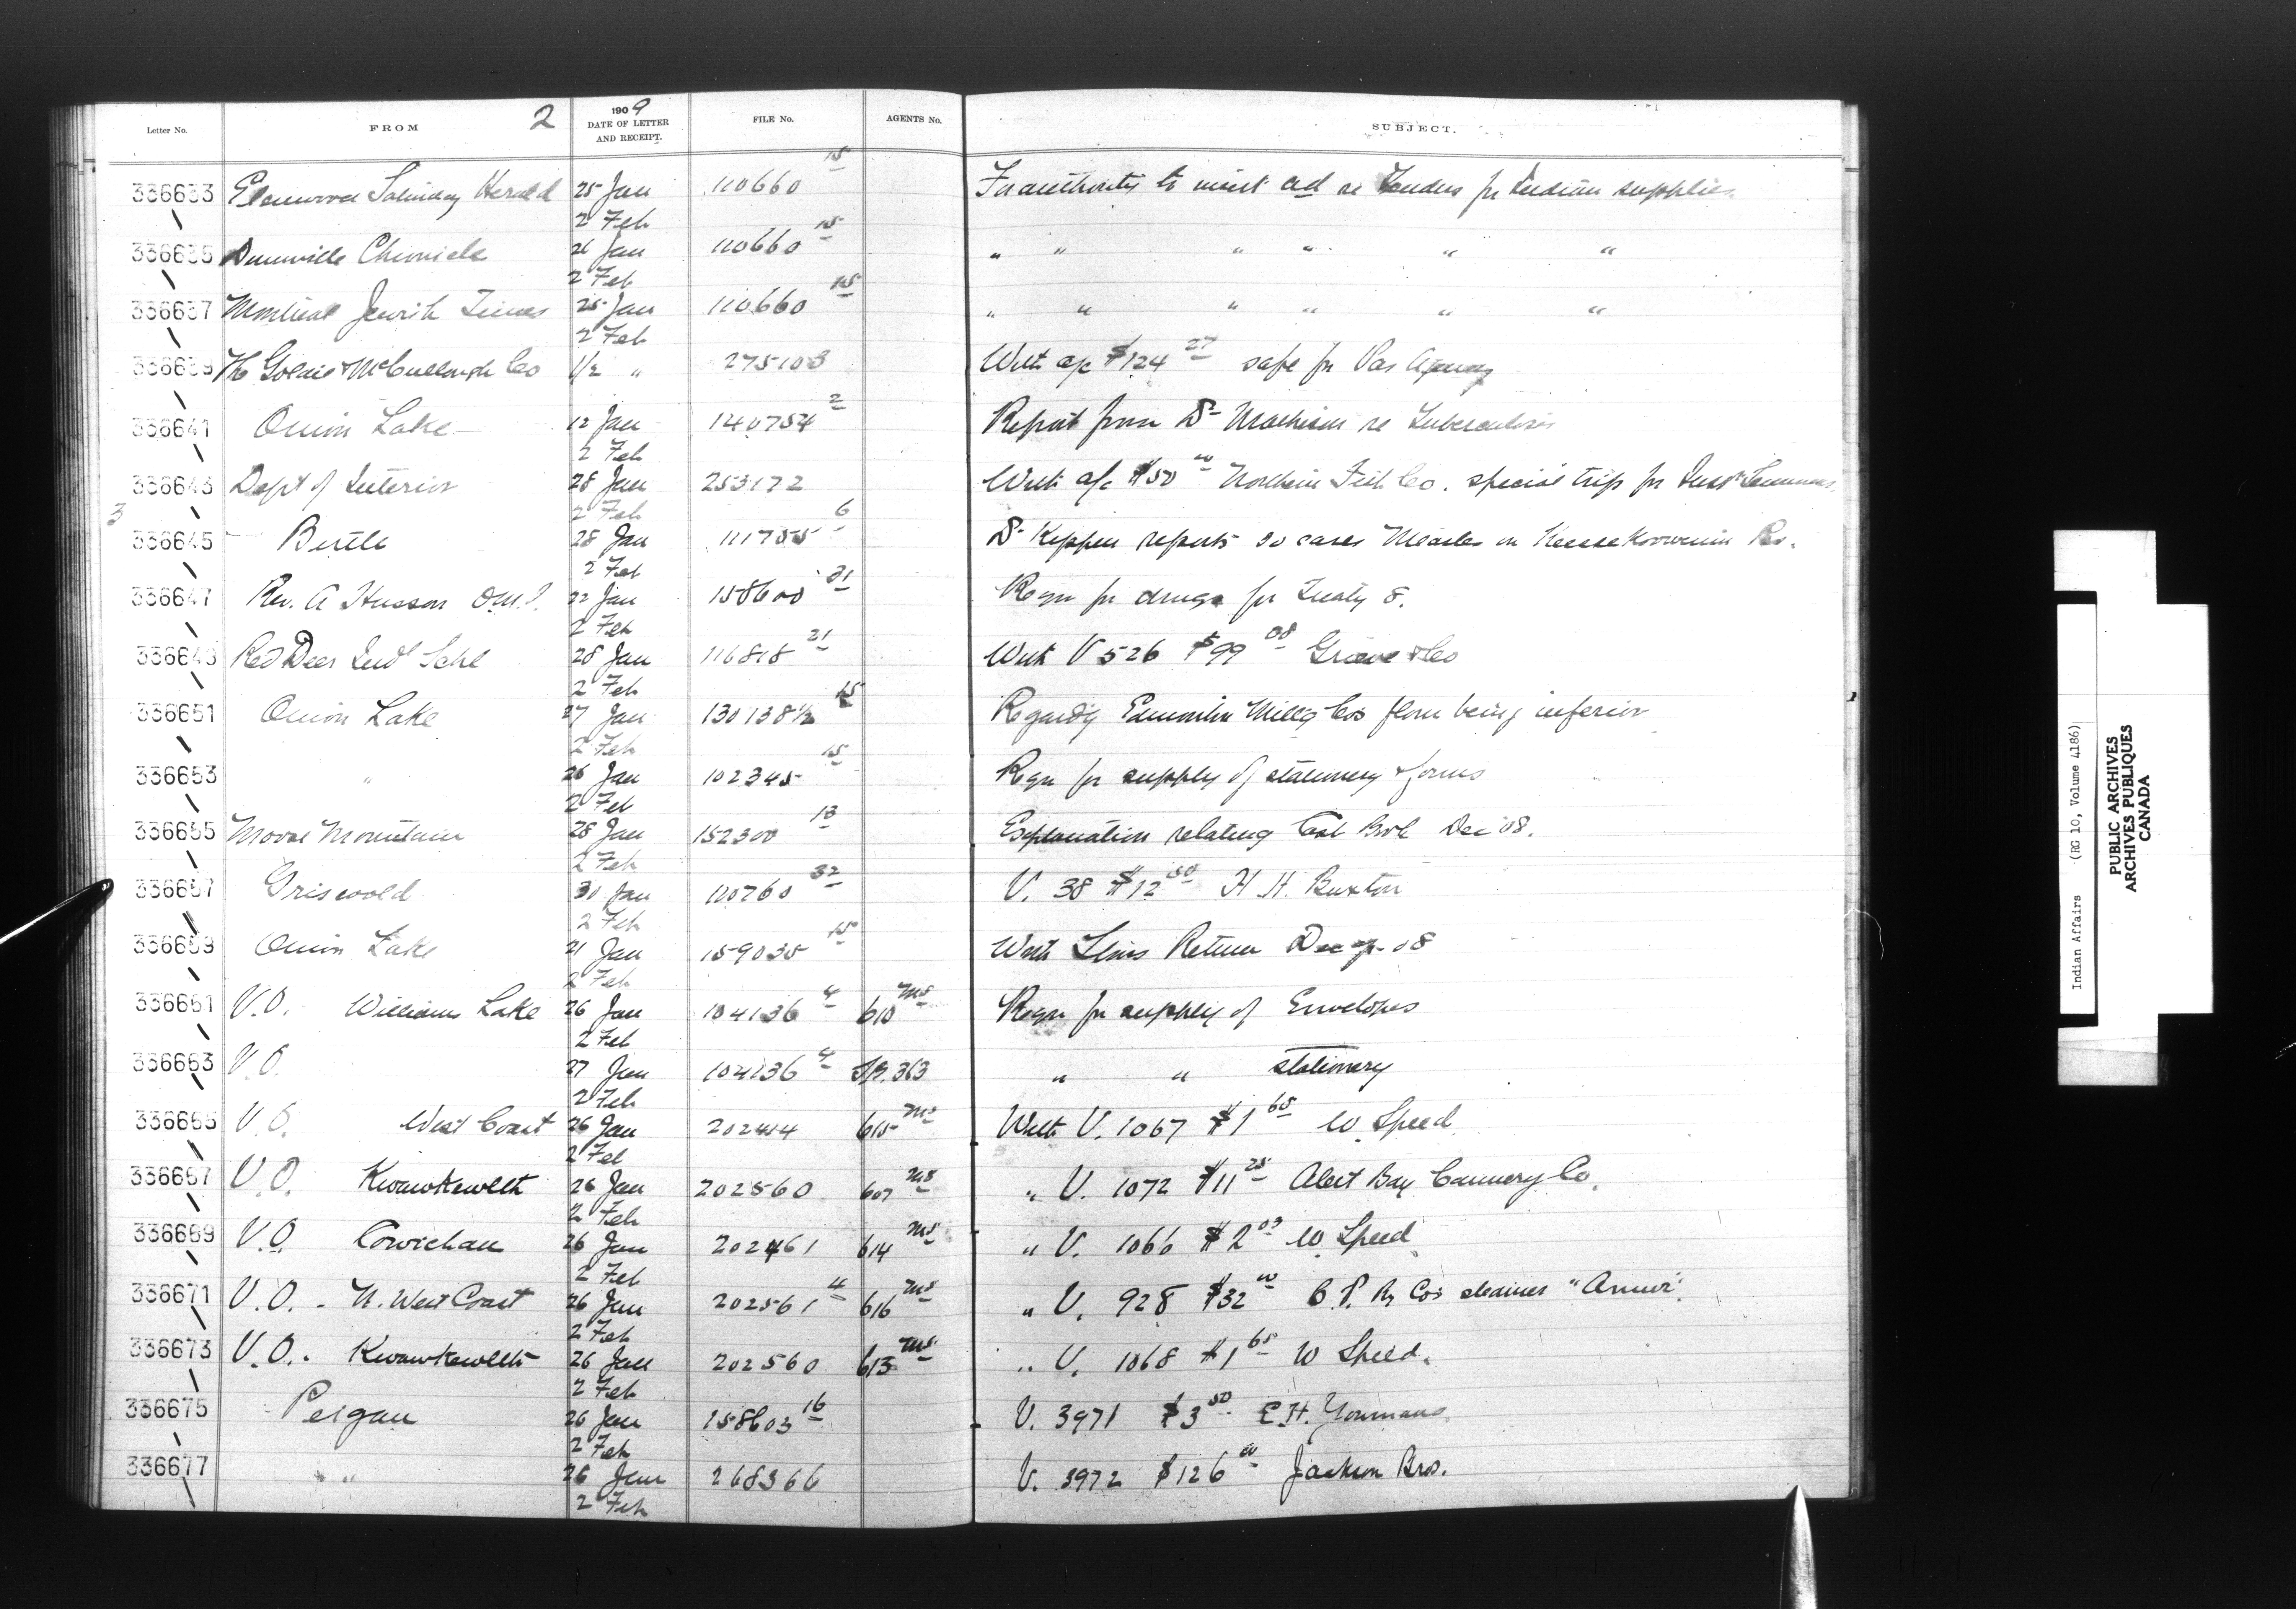 Letter No. FROM 2 1909 DATE OF LETTER AND RECEIPT. FILE No. AGENTS No. SUBJECT.
336633 Elmwood Saturday Herald 25 Jan 110660 15 For authority to insert ad re Tenders for Indian supplies
2 Feb
336635 Dunnville Chronicle 26 Jan 110660 15 " " " " " "
2 Feb
336637 Montreal Jewish Times 25 Jan 110660 15 " " " " " "
2 Feb
336639 The Goldie & McCullough Co 1/2 " 275103 With a/c $124 27 safe for Pas Agency
336641 Onion Lake 12 Jan 140754 2 Report from Dr Matheson re Tuberculosis
2 Feb
336643 Dept of Interior 28 Jan 253172 With a/c $50 00 Northern Fish Co. special trip for Inspr
2 Feb
3
336645 Birtle 28 Jan 111755 6 Dr reports 20 cases Measles on Keeseekoowenin Rs.
2 Feb
336647 Rev. A Husson O.M.I. 22 Jan 158600 31 Reqn for drugs for Treaty 8.
2 Feb
336649 Red Deer Indl Schl 28 Jan 116818 21 With V 526 $99 08 & Co
2 Feb
336651 Onion Lake 27 Jan 130138½ 15 Regardg Edmonton Millg Cos flour being inferior
2 Feb
336653 " 26 Jan 102345 15 Reqn for supply of stationery & forms
2 Feb
336655 Moose Mountain 28 Jan 152300 13 Explanation relating Cash Book Dec '08.
2 Feb
336657 Griswold 30 Jan 110760 32 V. 38 $12 50 H. H. Buxton
2 Feb
336659 Onion Lake 21 Jan 159035 15 With Return Dec 08
2 Feb
336661 V.O. Williams Lake 26 Jan 104136 4 610 MS Reqn for supply of Envelopes
2 Feb
336663 V.O. 27 Jan 104136 4 363 " " stationery
2 Feb
336665 V.O. West Coast 26 Jan 202414 615 MS With V. 1067 $1 65 W. Speed
2 Feb
336667 V.O. Kwawkewlth 26 Jan 202560 607 MS " V. 1072 $11 25 Alert Bay Cannery Co.
2 Feb
336669 V.O. Cowichan 26 Jan 202461 614 MS " V. 1066 $2 03 W. Speed
2 Feb
336671 V.O. - N. West Coast 26 Jan 202561 4 616 MS " V. 928 $32 00 C P. Ry Cos steamer "Amur".
2 Feb
336673 V.O. - Kwawkewlth 26 Jan 202560 613 MS " V. 1068 $1 65 W Speed.
2 Feb
336675 Peigan 26 Jan 158603 16 V. 3971 $3 50 E.H. Youmans.
2 Feb
336677 " 26 Jan 268366 V. 3972 $126 00 Jackson Bros.
2 Feb
Indian Affairs (RG 10, Volume 4186)
PUBLIC ARCHIVES
ARCHIVES PUBLIQUES
CANADA